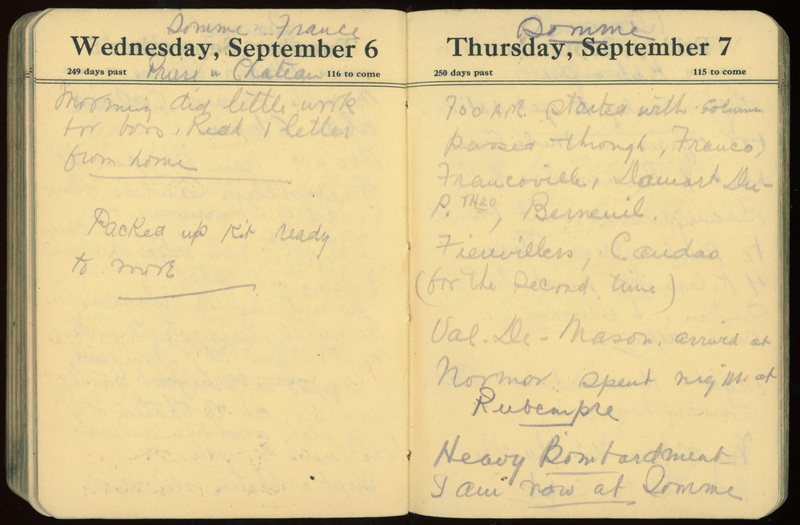 Somme France
Wednesday, September 6
249 days past Chateau 116 to come
Morning did little work
for boys. Read 1 letter
from home
Packed up kit ready
to move
Somme
Thursday, September 7
250 days past 115 to come
7 00 A.M. Started with column
passed through, Franco,
Francoville, Domart De-
P. , Berneuil.
Fienvillers, Candas
(for the second time)
Val. De- Mason. arrived at
spent night at
Rubempre
Heavy Bombardment
I am now at Somme